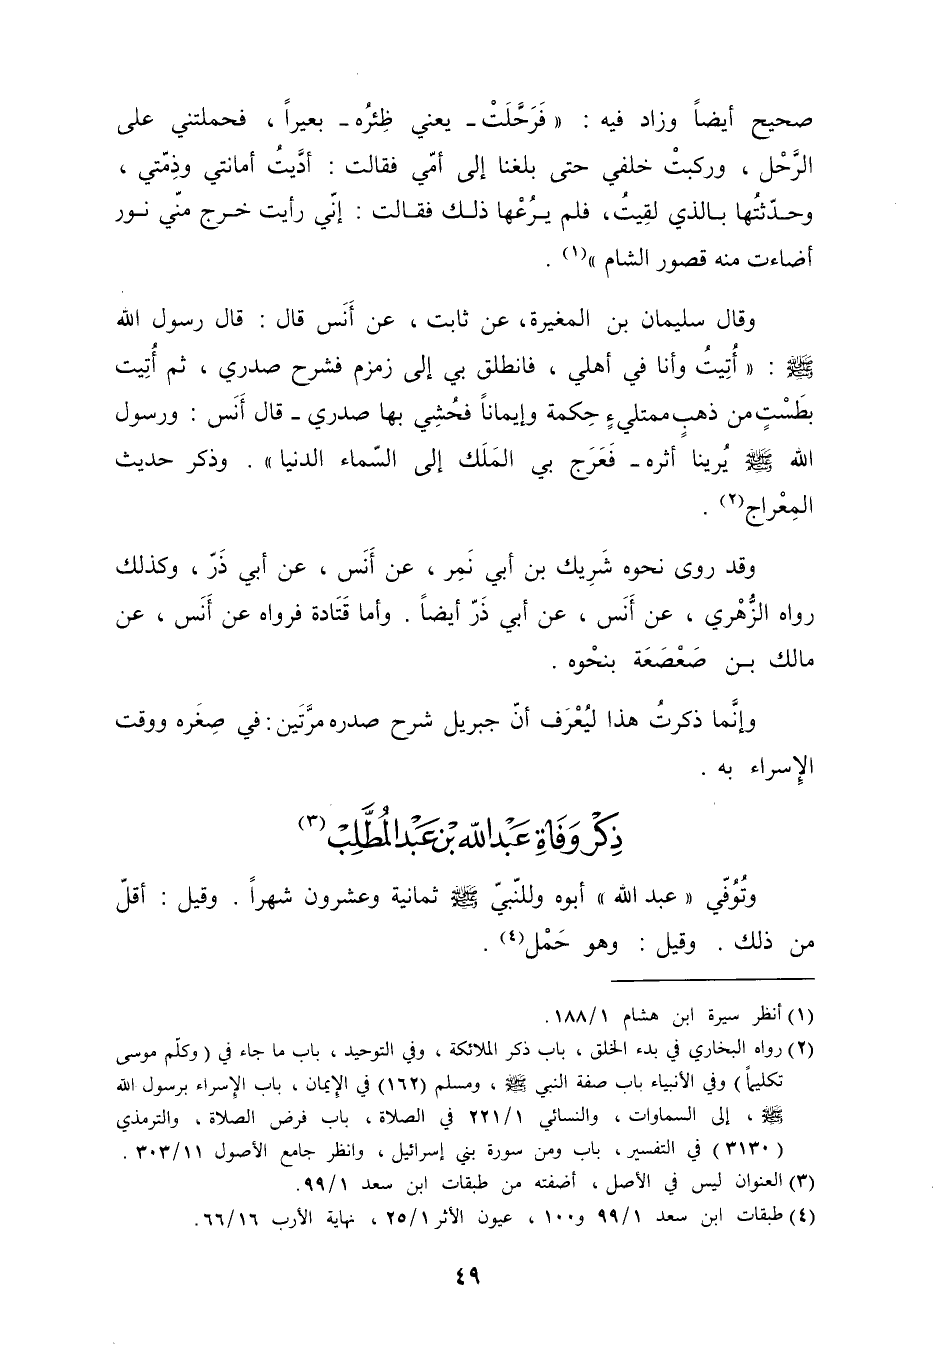 صحيح أيضاً وزاد فيه : « فَرَحَّلَتْ - يعني ظِئرُه - بعيراً ، فحملتني على
الرَّحْل ، وركبتْ خلفي حتى بلغنا إلى أمّي فقالت : أدَّيتُ أمانتي وذِمّتي ،
وحدّثتُها بالذي لقِيتُ، فلم يرُعْها ذلك فقالت : إنّي رأيت خرج منّي نور
أضاءت منه قصور الشام »(١) .
وقال سليمان بن المغيرة، عن ثابت ، عن أَنَس قال : قال رسول الله
ﷺ : « أُتِيتُ وأنا في أهلي ، فانطلق بي إلى زمزم فشرح صدري ، ثم أُتِيت
بطَسْتٍ من ذهبٍ ممتليءٍ حِكمة وإيماناً فحُشِي بها صدري - قال أَنَس : ورسول
الله ﷺ يُرينا أثره - فَعَرَج بي المَلَك إلى السّماء الدنيا » . وذكر حديث
المِعْراج(٢) .
وقد روى نحوه شَرِيك بن أبي نَمِر ، عن أَنَس ، عن أبي ذَرّ ، وكذلك
رواه الزُّهْري ، عن أَنَس ، عن أبي ذَرّ أيضاً . وأما قَتَادة فرواه عن أَنَس ، عن
مالك بن صَعْصَعَة بنحْوه .
وإنَّما ذكرتُ هذا ليُعْرَف أنّ جبريل شرح صدره مرَّتَين : في صِغَره ووقت
الإسراء به .
ذِكْر وَفَاة عَبْد الله بْن عَبْد المُطَّلِبْ (٣)
وتُوُفّي « عبد الله » أبوه وللنّبيّ ﷺ ثمانية وعشرون شهراً . وقيل : أقلّ
من ذلك . وقيل : وهو حَمْل(٤) .
(١) أنظر سيرة ابن هشام ١٨٨/١.
(٢) رواه البخاري في بدء الخلق ، باب ذكر الملائكة ، وفي التوحيد ، باب ما جاء في ( وكلّم موسى
تكليماً ) وفي الأنبياء باب صفة النبي ﷺ ، ومسلم (١٦٢) في الإيمان ، باب الإسراء برسول الله
ﷺ ، إلى السماوات ، والنسائي ٢٢١/١ في الصلاة ، باب فرض الصلاة ، والترمذي
(٣١٣٠) في التفسير ، باب ومن سورة بني إسرائيل ، وانظر جامع الأصول ٣٠٣/١١ .
(٣) العنوان ليس في الأصل ، أضفته من طبقات ابن سعد ٩٩/١.
(٤) طبقات ابن سعد ٩٩/١ و١٠٠ ، عيون الأثر ٢٥/١ ، نهاية الأرب ٦٦/١٦.
٤٩